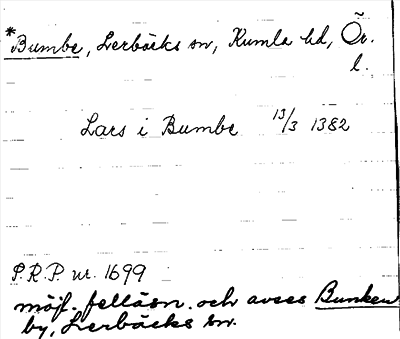 *Bumbe, Lerbäcks sn, Kumla hd, Ör.
l.
Lars i Bumbe 13/3 1382
P.R.P. nr. 1699
möjl. felläsn. och avses Bunken
by, Lerbäcks sn.